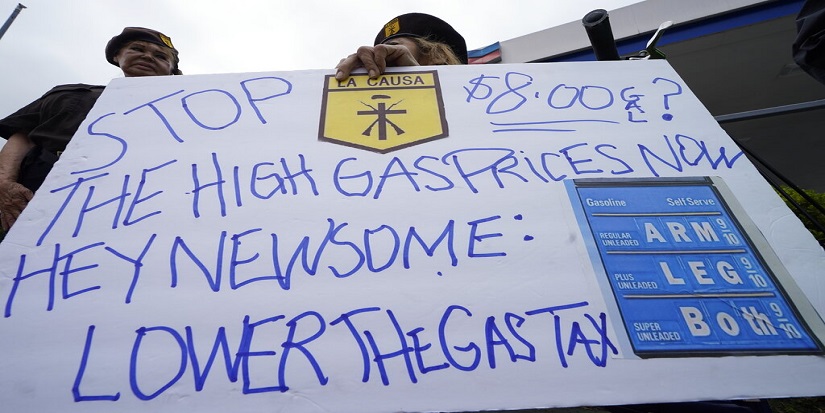 LA CAUSA
STOP $8.00 GAL?
THE HIGH GAS PRICES NOW
HEY NEWSOME:
LOWER THE GAS TAX
Gasoline Self Serve
REGULAR UNLEADED ARM 9/10
PLUS UNLEADED LEG 9/10
SUPER UNLEADED Both 9/10